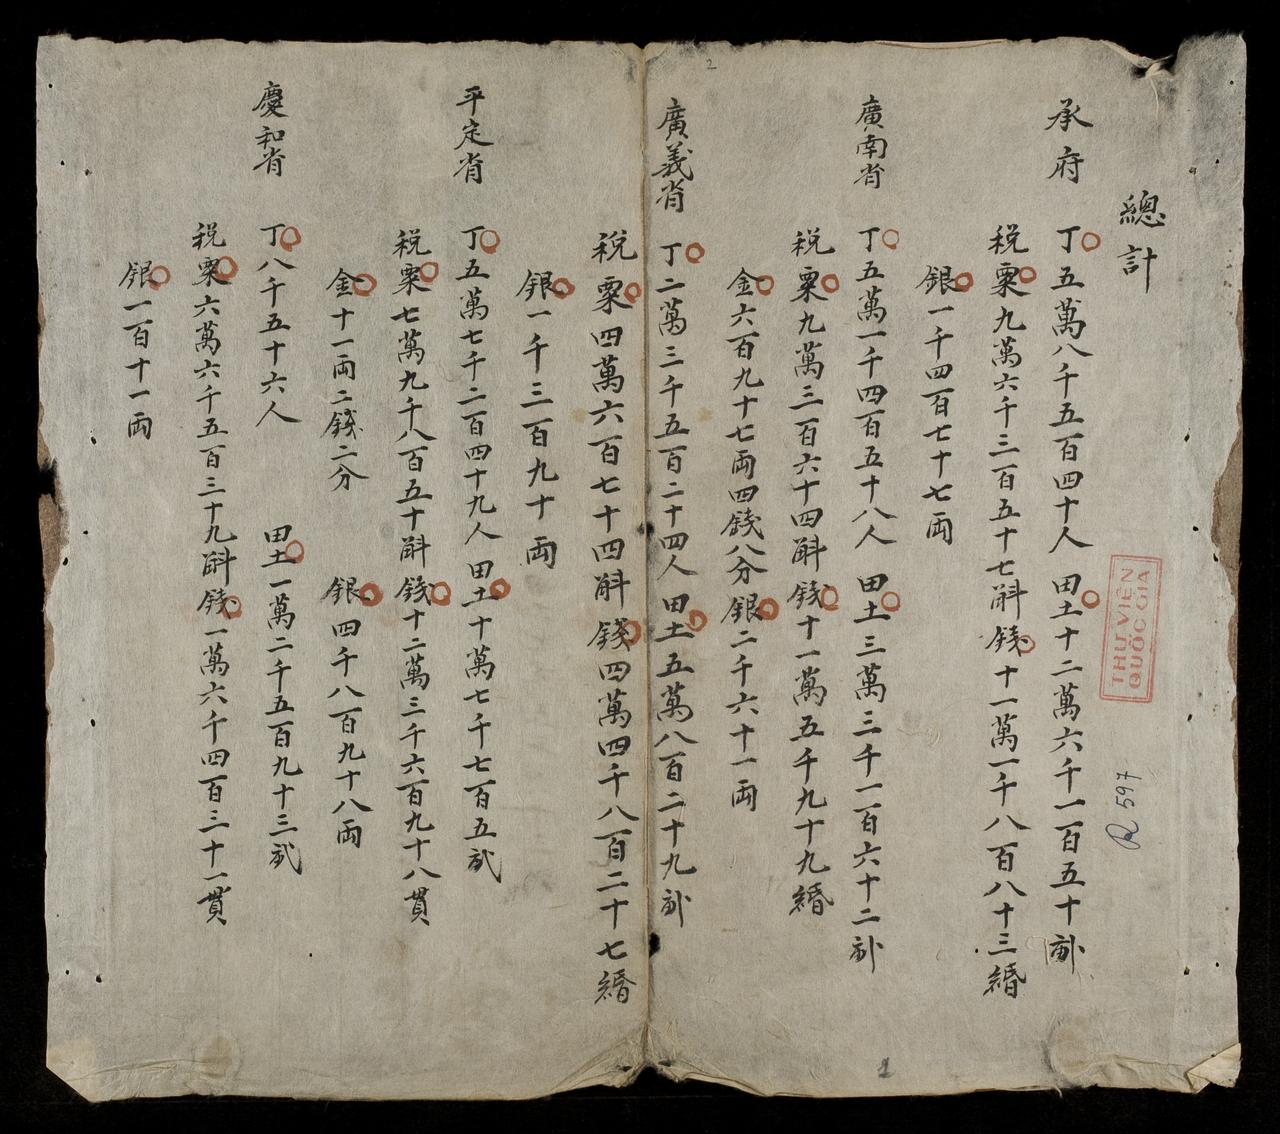 總計
承府
丁五萬八千五百四十人 田土十二萬六千一百五十畝
税粟九萬六千三百五十七斛 錢十一萬一千八百八十三緡
銀一千四百七十七両
廣南省
丁五萬一千四百五十八人 田土三萬三千一百六十二畝
税粟九萬三百六十四斛 錢十一萬五千九十九緡
金六百九十七両四錢八分 銀二千六十一両
廣義省
丁二萬三千五百二十四人 田土五萬八百二十九畝
税粟四萬六百七十四斛 錢四萬四千八百二十七緡
銀一千三百九十両
平定省
丁五萬七千二百四十九人 田土十萬七千七百五畝
税粟七萬九千八百五十斛 錢十二萬三千六百九十八貫
金十一両二錢二分 銀四千八百九十八両
慶和省
丁八千五十六人 田土一萬二千五百九十三畝
税粟六萬六千五百三十九斛 錢一萬六千四百三十一貫
銀一百十一両
THƯ VIỆN
QUỐC GIA
R 597
2
1